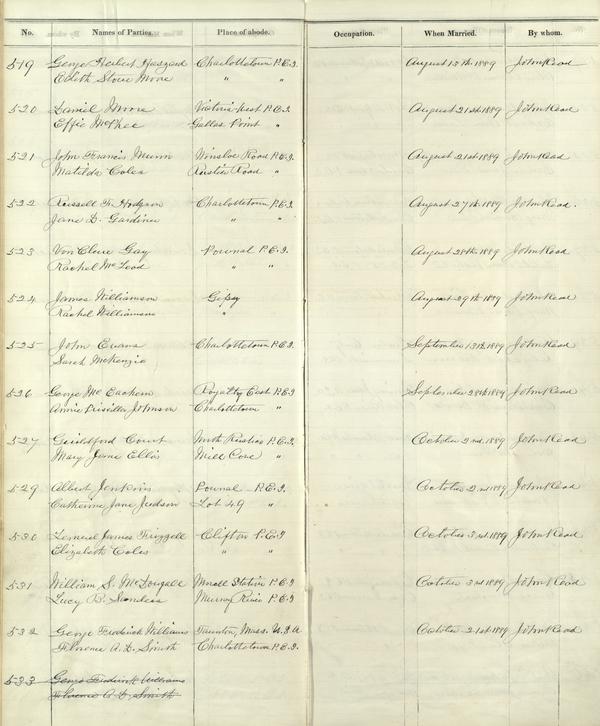 No. Names of Parties. Place of abode. Occupation. When Married. By whom.
519 George Herbert Haszard Charlottetown P.E.I. August 15th 1889 John Read
Edith Stowe Moore " "
520 Daniel Moore Victoria West P.E.I. August 21st 1889 John Read
Effie McPhee Gallas Point "
521 John Francis Munn Winsloe Road P.E.I. August 21st 1889 John Read
Matilda Coles Rustico Road "
522 Russell F. Hodgson Charlottetown P.E.I. August 27th 1889 John Read.
Jane D. Gardiner " "
523 Von Clure Gay Pownal P.E.I. August 28th 1889 John Read
Rachel McLeod " "
524 James Williamson Gipsy August 29th 1889 John Read
Rachel Williamson "
525 John Evans Charlottetown P.E.I. September 13th 1889 John Read
Sarah McKenzie
526 George McEachern Royalty East P.E.I September 28th 1889 John Read
Annie Priscilla Johnson Charlottetown "
527 Guildford Court North Rustico P.E.I. October 2nd 1889 John Read
Mary Jane Ellis Mill Cove "
529 Albert Jenkins Pownal P.E.I. October 2nd 1889 John Read
Catherine Jane Judson Lot 49 "
530 Lemuel James Frizzell Clifton P.E.I October 3rd 1889 John Read
Elizabeth Coles " "
531 William S. McDougall Morell Station P.E.I October 3rd 1889 John Read
Lucy B. Sanders Murray River P.E.I
532 George Frederick Williams Taunton, Mass. U.S.A October 21st 1889 John Read
Florence A. D. Smith Charlottetown P.E.I.
533 George Frederick Williams
Florence A. D. Smith